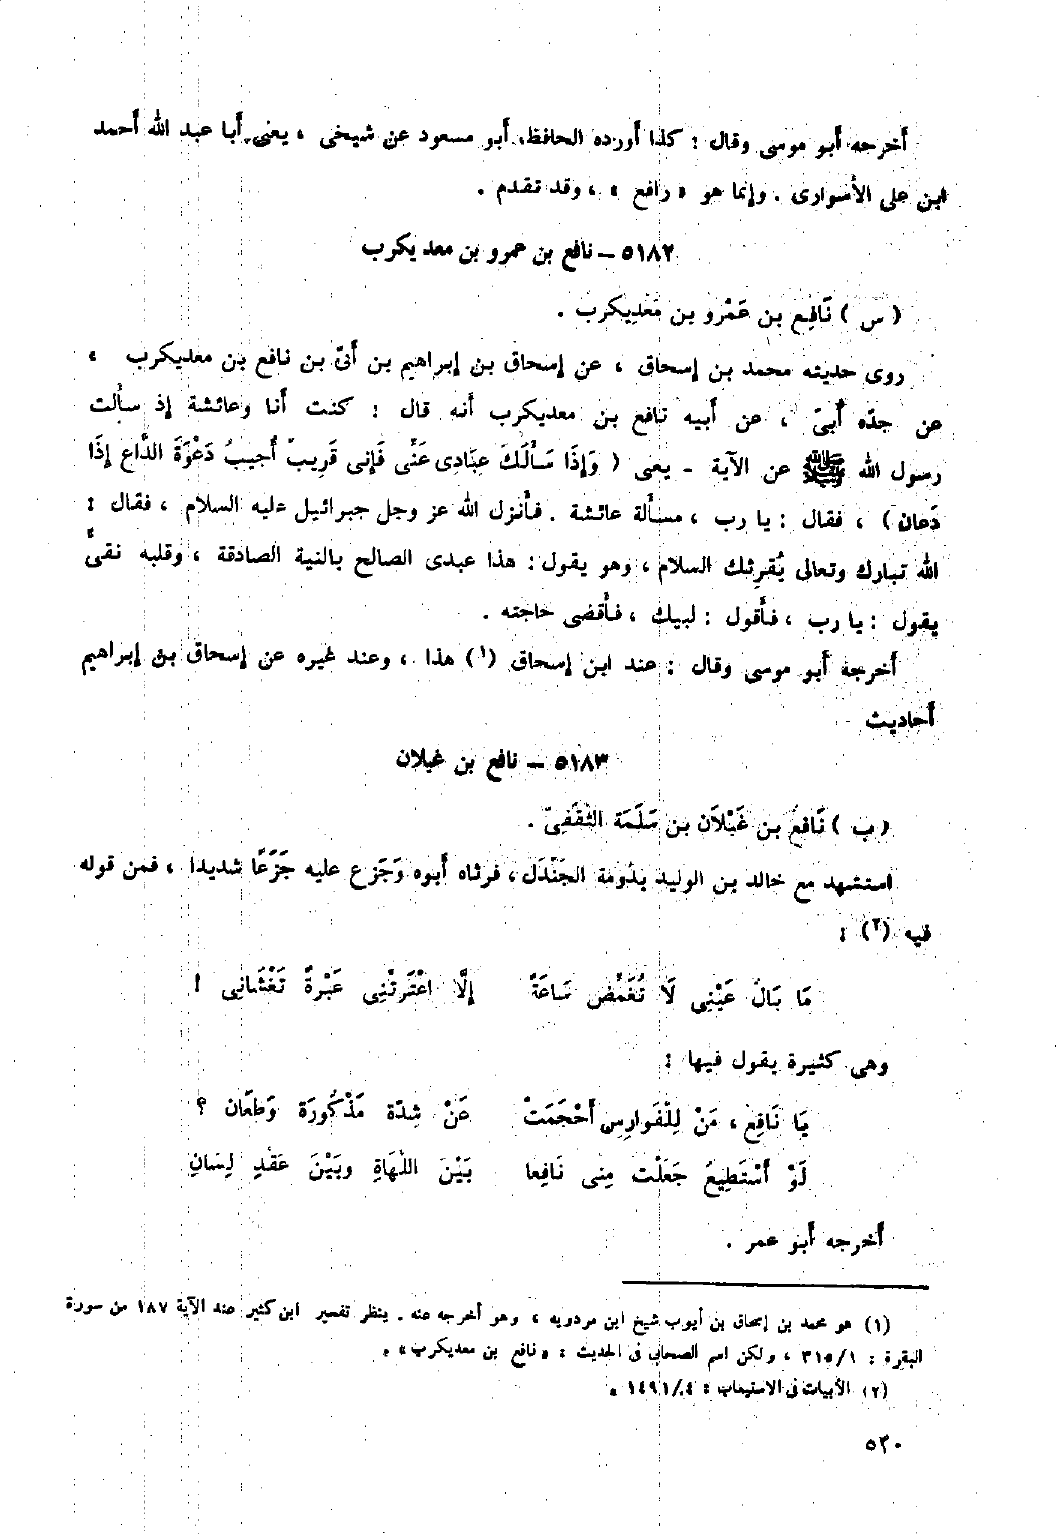 أخرجه أبو موسى وقال : كذا أورده الحافظ. أبو مسعود عن شيخى ، يعنى أبا عبد الله أحمد
ابن على الأسوارى . وإنما هو « رافع » ، وقد تقدم .
٥١٨٢ – نافع بن عمرو بن معد يكرب
( س ) نَافِع بن عَمْرو بن مَعْدِيكرب .
روى حديثه محمد بن إسحاق ، عن إسحاق بن إبراهيم بن أبىّ بن نافع بن معديكرب ،
عن جدّه أُبىّ ، عن أبيه نافع بن معديكرب أنه قال : كنت أنا وعائشة إذ سألت
رسول الله ﷺ عن الآية - يعنى ( وَإِذَا سَأَلَكَ عِبَادِى عَنِّى فَإِنى قَرِيبٌ أُجِيبُ دَعْوَةَ الدَّاع إِذَا
دَعان ) ، فقال : يا رب ، مسألة عائشة . فأنزل الله عز وجل جبرائيل عليه السلام ، فقال :
الله تبارك وتعالى يُقرِئك السلام ، وهو يقول : هذا عبدى الصالح بالنية الصادقة ، وقلبه نقىٌّ
يقول : يا رب ، فأقول : لبيك ، فأقضى حاجته .
أخرجه أبو موسى وقال : عند ابن إسحاق (١) هذا ، وعند غيره عن إسحاق بن إبراهيم
أحاديث
٥١٨٣ – نافع بن غيلان
( ب ) نَافعُ بن غَيْلَان بن سَلَمَة الثقَفِىّ .
استشهد مع خالد بن الوليد بدُومة الجَنْدَل ، فرثاه أبوه وَجَزع عليه جَزَعًا شديدا ، فمن قوله
فيه (٢) :
مَا بَالُ عَيْنِى لَا تُغَمِّض سَاعَةً إِلَّا اعْتَرتْنِى عَبْرةٌ تَغْشَانِى !
وهى كثيرة يقول فيها :
يَا نَافِع ، مَنْ لِلْفَوارِس أَحْجَمَتْ عَنْ شِدّة مَذْكُورَة وَطعَان ؟
لَوْ أَسْتَطِيعُ جَعَلْت مِنى نَافِعا بَيْنَ اللَّهَاةِ وبَيْنَ عَقْدِ لِسَانِ
أخرجه أبو عمر .
(١) هو محمد بن إسحاق بن أيوب شيخ ابن مردويه ، وهو أخرجه عنه . ينظر تفسير ابن كثير عند الآية ١٨٧ من سورة
البقرة : ٣١٥/١ ، ولكن اسم الصحابى فى الحديث : « نافع بن معديكرب » .
(٢) الأبيات فى الاستيعاب : ١٤٩١/٤ .
٥٣٠